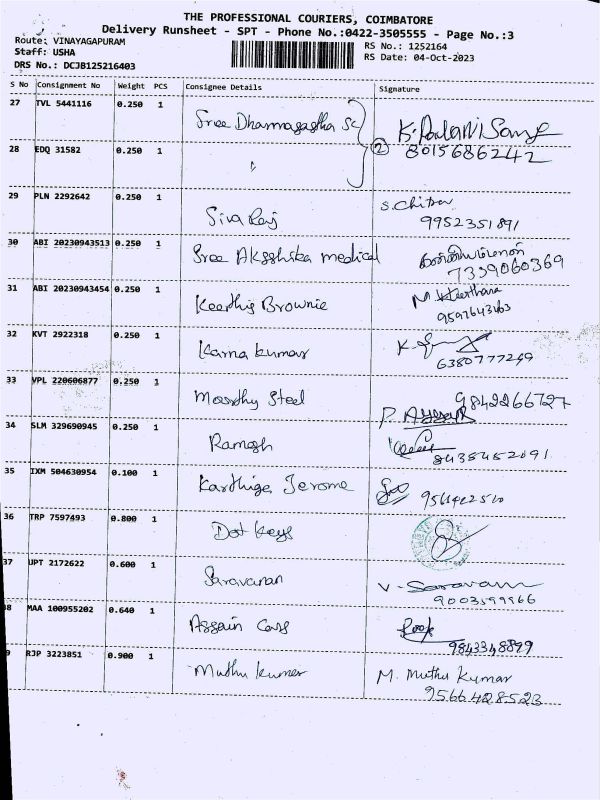 THE PROFESSIONAL COURIERS, COIMBATORE
Delivery Runsheet - SPT - Phone No.:0422-3505555 - Page No.:3
Route: VINAYAGAPURAM
Staff: USHA
DRS No.: DCJB125216403
RS No.: 1252164
RS Date: 04-Oct-2023
S No Consignment No Weight PCS Consignee Details Signature
27 TVL 5441116 0.250 1 Sree Dharmasastha Sc
28 EDQ 31582 0.250 1 " 2 8015686242
29 PLN 2292642 0.250 1 Siva Raj S. Chitra
9952351891
30 ABI 20230943513 0.250 1 Sree Aksshika medical
7339060369
31 ABI 20230943454 0.250 1 Keerthis Brownie M. Keerthana
32 KVT 2922318 0.250 1 Karna kumar K.
6380777249
33 VPL 220606877 0.250 1 Moorthy Steel 9842266727
34 SLM 329690945 0.250 1 Ramesh
8435452091
35 IXM 504630954 0.100 1 Karthiga Jerome
36 TRP 7597493 0.800 1 Dot Keys
37 UPT 2172622 0.600 1 Saravanan V. Saravanan
9003599966
8 MAA 100955202 0.640 1 Assain Cars
9843348899
9 RJP 3223851 0.900 1 Muthu kumar M. Muthu Kumar
9566428523